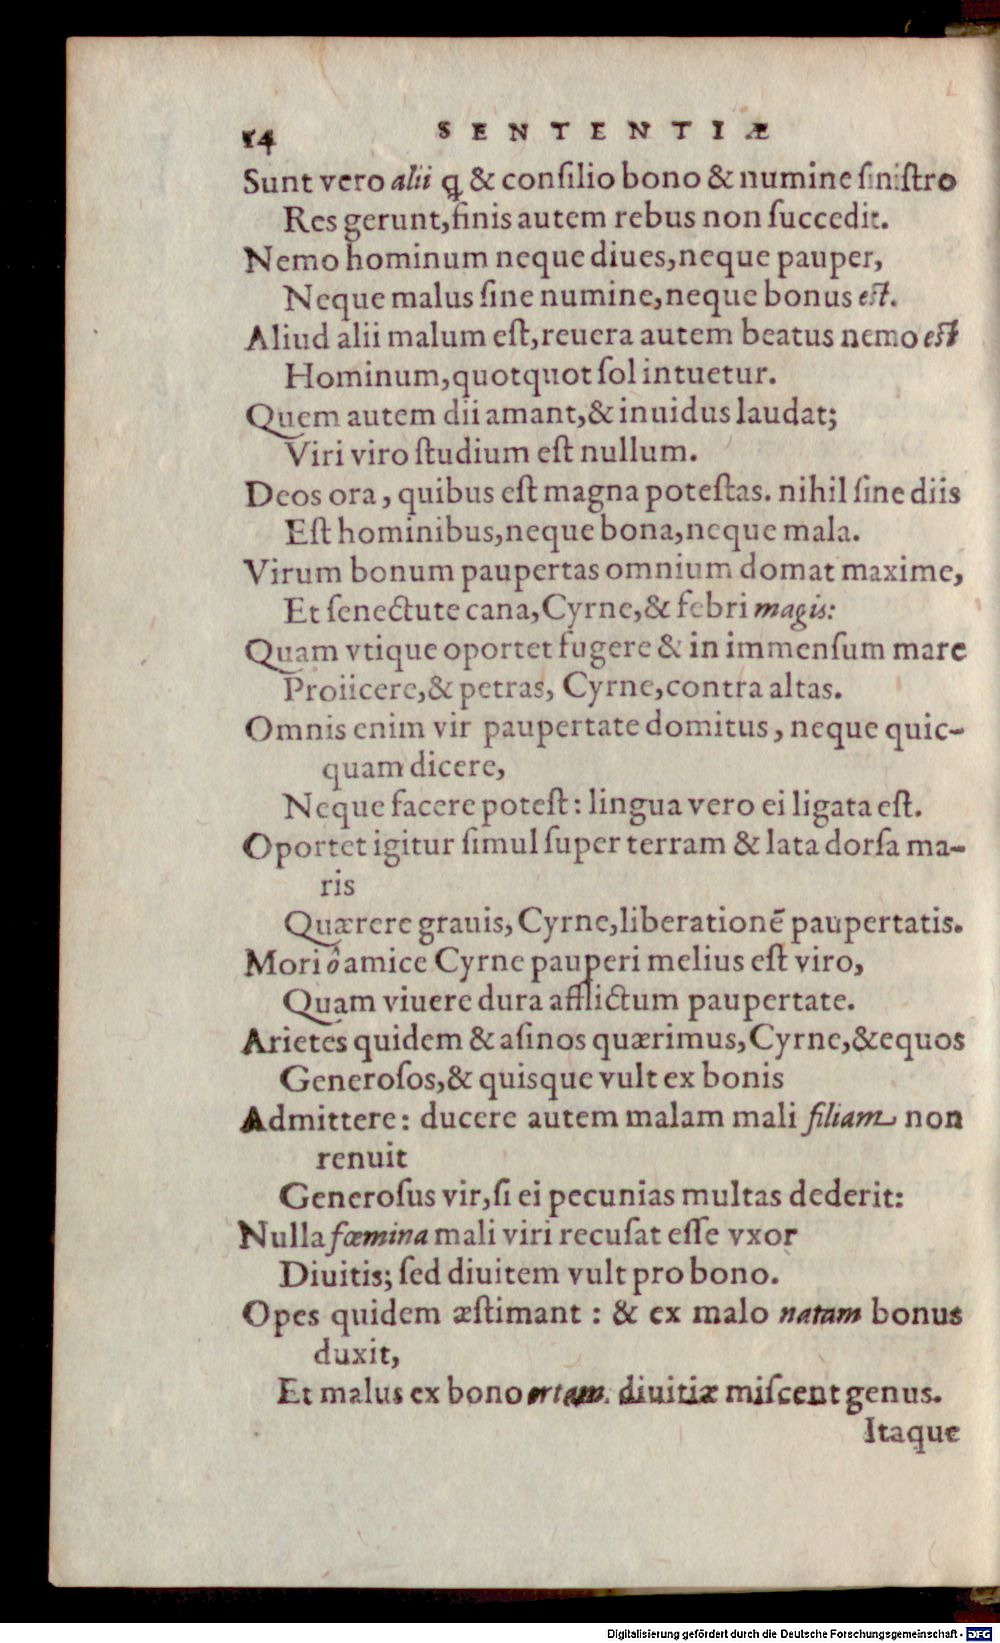 14 SENTENTIÆ
Sunt vero alii ꝗ & conſilio bono & numine ſiniſtro
Res gerunt, finis autem rebus non ſuccedit.
Nemo hominum neque diues, neque pauper,
Neque malus ſine numine, neque bonus eſt.
Aliud alii malum eſt, reuera autem beatus nemo eſt
Hominum, quotquot ſol intuetur.
Quem autem dii amant, & inuidus laudat;
Viri viro ſtudium eſt nullum.
Deos ora, quibus eſt magna poteſtas. nihil ſine diis
Eſt hominibus, neque bona, neque mala.
Virum bonum paupertas omnium domat maxime,
Et ſenectute cana, Cyrne, & febri magis:
Quam vtique oportet fugere & in immenſum mare
Proiicere, & petras, Cyrne, contra altas.
Omnis enim vir paupertate domitus, neque quic-
quam dicere,
Neque facere poteſt: lingua vero ei ligata eſt.
Oportet igitur ſimul ſuper terram & lata dorſa ma-
ris
Quærere grauis, Cyrne, liberationē paupertatis.
Mori ô amice Cyrne pauperi melius eſt viro,
Quam viuere dura afflictum paupertate.
Arietes quidem & aſinos quærimus, Cyrne, & equos
Generoſos, & quisque vult ex bonis
Admittere: ducere autem malam mali filiam non
renuit
Generoſus vir, ſi ei pecunias multas dederit:
Nulla fœmina mali viri recuſat eſſe vxor
Diuitis; ſed diuitem vult pro bono.
Opes quidem æſtimant: & ex malo natam bonus
duxit,
Et malus ex bono ortam. diuitiæ miſcent genus.
Itaque
Digitalisierung gefördert durch die Deutsche Forschungsgemeinschaft - DFG